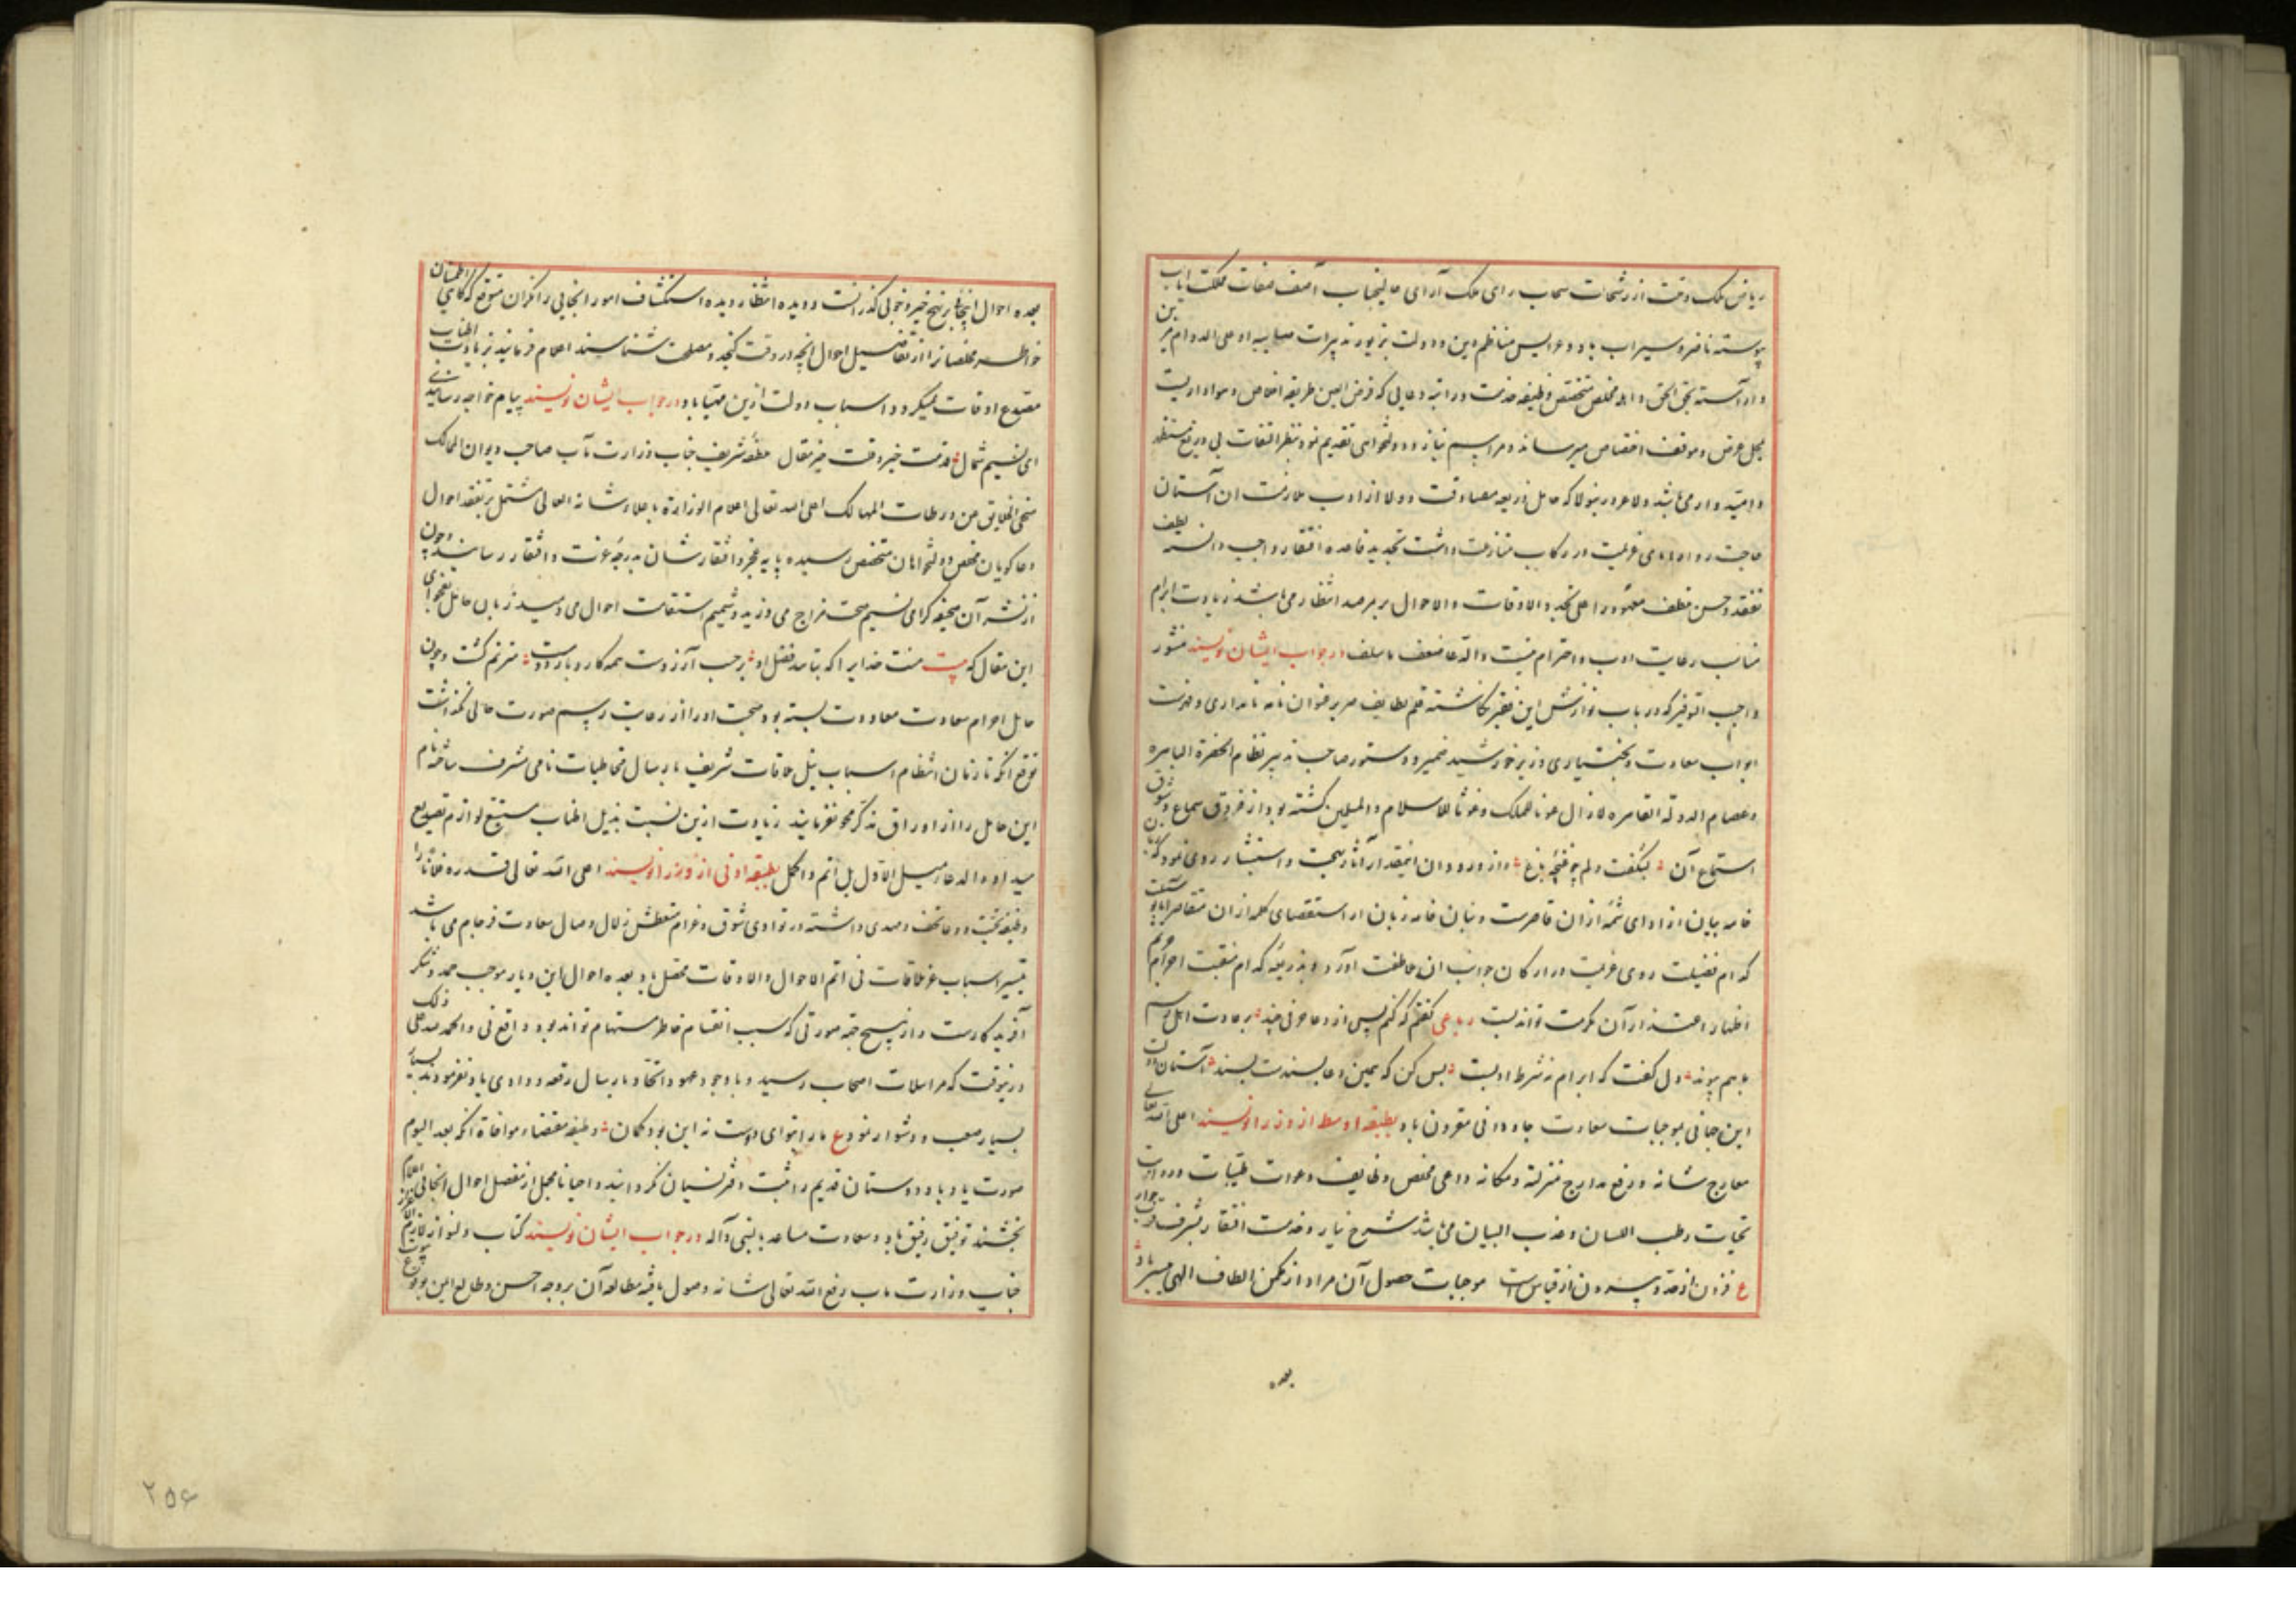 ریاض ملک وقت از رشحات سحاب رای ملک آرای عالیجناب آصف صفات مملکت ایاب
پیوسته ناضر و سیراب باد و عرایس مناظم دین و دولت بزیور تدبیرات صایبه او علی الدوام مزین
و آراسته بحق الحق و اهله مخلص متخصص وظیفه خدمت و راتبه دعایی که فرض العین طریقه اخلاص و
بمحل عرض و موقف اختصاص میرساند و مراسم نیاز و دولتخواهی تقدیم نموده بنظر التفات بی دریغ مستظهر
و امیدوار می باشد و لاغرو درینولا که حامل ذریعه مصادقت و ولا از ادب ملازمت ان آستان
حاجت روا پای عزیمت در رکاب داشت تجدید قاعده افتقار واجب دانست بلطف
تفقد و حسن تعطف معهود را علی تجدد الاوقات والاحوال بر مرصد انتظار می باشد زیادت ابرام
مناسب رعایت ادب و احترام نیست والدعا ضعف ما سلف در جواب ایشان نویسند منشور
واجب التوقیر که در باب نوازش این فقیر نگاشته قلم لطایف صریر عنوان نامه نامداری و فهرست
ابواب سعادت و بختیاری وزیر خورشید ضمیر و دستور صاحب تدبیر نظام الحضرة الباهره
و عصام الدولة القاهره لازال عونا للملک و غوثا للاسلام والمسلمین گشته بود از فرق سماع و شوق
استماع آن بشگفت دلم چو غنچه باغ و از ورود آن آثار بهجت و استبشار روی نمود که
خامه بیان از ادای شمه ازان قاصرست و بنان خامه زبان از استقصای کلمه ازان متقاصر
که ام فضیلت روی عزیمت در ارکان جوانب ان عاطفت اورد و بذریعه که ام منقبت احرام حریم
اظهار اعتذار آن مکرمت تواند بست رباعی گفتم که کنم پس از دعا حرفی چند بر عادت اهل رسم
با هم پیوند دل گفت که ابرام نه شرط ادبست بس کن که همین دعا بسندست بسند آستان دولت
این جهانی بموجبات سعادت جاودانی مقرون باد بطبقه اوسط از وزرا نویسند اعلی الله تعالی
معارج شانه و رفع مدارج منزلته و مکانه داعی مخلص وظایف دعوات طیبات و رواتب
تحیات رطب اللسان و عذب البیان می باشد شرح نیاز و خدمت افتقار بشرف جوار
ع فزون از حد و بیرون از قیاس است موجبات حصول آن مراد از مکمن الطاف الهی میسر باد
بعده
بعده احوال اینجا بر نهج خیر و خوبی گذرانست و دیده انتظار دیده استکشاف امور انجایی را نگران متوقع که گاهی اطمینان
خواطر مخلصان را از تفاصیل احوال انچه در وقت گنجد و مصلحت شناسند اعلام فرمایند زیادت اطناب
مصدع اوقات نمیگردد و اسباب دولت ازین مهیا باد در جواب ایشان نویسند پیام خواجه رسانیدی
ای نسیم شمال قدمت خیر وقت خیر مقال ملطفه شریف جناب وزارت مآب صاحب دیوان الممالک
منجی الخلایق من ورطات المهالک اعلی الله تعالی اعلام الوزارة باعلاء شانه العالی مشتمل بر تفقد احوال
دعاگویان مخلص و دولتخواهان متخصص رسیده پایه فخر و افتقارشان بدرجه عزت و افتقار رسانید و چون
از نشر آن صحیفه گرامی نسیم صحت مزاج می وزید و شمیم استقامت احوال می دمید زبان حامل بفحوای
این مقال که بیت منت خدایرا که بتایید فضل او بر حسب آرزوست همه کار و بار دوست مترنم گشت و چون
حامل احرام سعادت معاودت بسته بود صحبت او را از رعایت رسم صورت خالی نگذاشت
توقع آنکه تا زمان انتظام اسباب نیل ملاقات شریف بارسال مخاطبات نامی مشرف ساخته نام
این حامل را از اوراق تذکر محو نفرمایند زیادت ازین نسبت بذیل اطناب مستتبع لوازم تصدیع
میداند والدعاء سبیل الاول بل اتم و اکمل بطبقه ادنی از وزرا نویسند اعلی الله تعالی قدره
وظیفه تحیت و دعا تحف و مهدی داشته در بوادی شوق و غرام متعطش زلال وصال سعادت فرجام می باشد
تیسیر اسباب عز ملاقات فی اتم الاحوال والاوقات محصل باد بعده احوال این دیار موجب حمد و شکر
آفریدگارست و از هیچ جهة صورتی که سبب انقسام خاطر مستهام تواند بود واقع نی والحمد لله علی ذلک
درینوقت که مراسلات اصحاب رسید و با وجود عهود اتحاد بارسال رقعه دوادی یاد نفرمودند بسیار
بسیار صعب و دشوار نمود ع مارا بتو ای دوست نه این بود گمان وظیفه مقتضاء موافاة آنکه بعد الیوم
صورت یاد باد دوستان قدیم را ثبت دفتر نسیان نگردانند و احیانا مجمل از مفصل احوال انجائی اعلام
بخشند توفیق رفیق باد و سعادت مساعد بالنبی و آله در جواب ایشان نویسند کتاب دلنواز
جناب وزارت ماب رفع الله تعالی شانه وصول یافته مطالعه آن بر وجه احسن و طالع ایمن بوقوع
۲۵۶